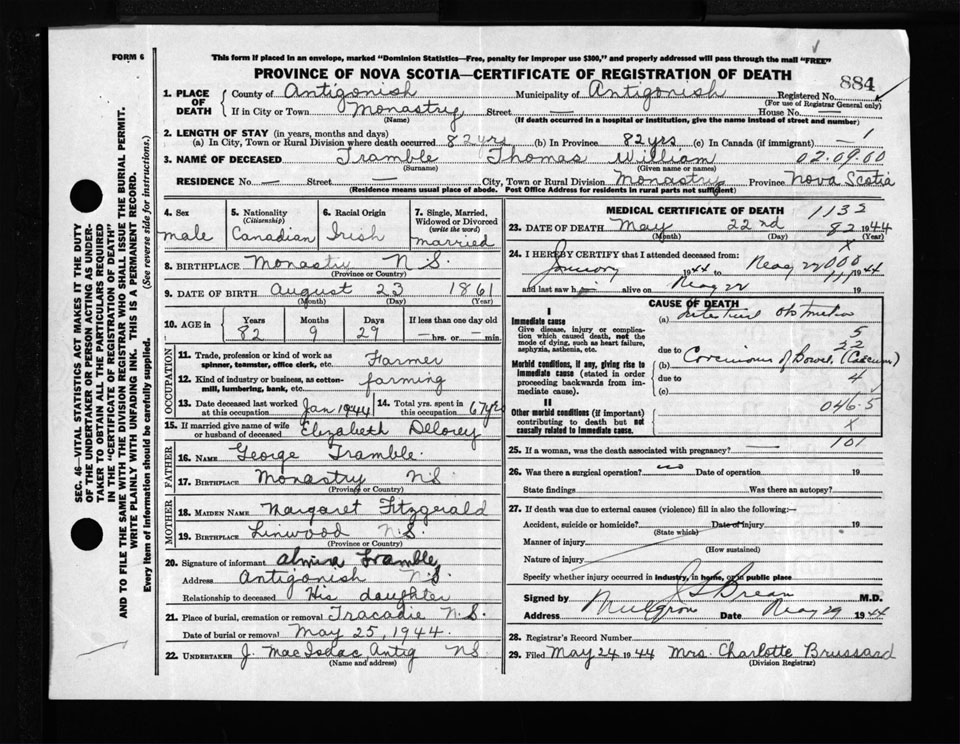 FORM 6
This form if placed in an envelope, marked "Dominion Statistics—Free, penalty for improper use $300," and properly addressed will pass through the mail "FREE"
PROVINCE OF NOVA SCOTIA—CERTIFICATE OF REGISTRATION OF DEATH
884
1. PLACE OF DEATH County of Antigonish Municipality of Antigonish Registered No.
(For use of Registrar General only)
If in City or Town Monastry Street — House No. —
(Name) (If death occurred in a hospital or institution, give the name instead of street and number)
2. LENGTH OF STAY (in years, months and days)
(a) In City, Town or Rural Division where death occurred 82 yrs (b) In Province 82 yrs. (c) In Canada (if immigrant) —
3. NAME OF DECEASED Tramble Thomas William 02.09.60
(Surname) (Given or names)
RESIDENCE No. — Street — City, Town or Rural Division Monastry Province Nova Scotia
(Residence means usual place of abode. Post Office Address for residents in rural parts not sufficient)
4. Sex male
5. Nationality (Citizenship) Canadian
6. Racial Origin Irish
7. Single, Married, Widowed or Divorced (write the word) married
8. BIRTHPLACE Monastry N S.
(Province or Country)
9. DATE OF BIRTH August 23 1861
(Month) (Day) (Year)
10. AGE in Years 82 Months 9 Days 29 If less than one day old — hrs. or — min.
OCCUPATION
11. Trade, profession or kind of work as spinner, teamster, office clerk, etc. Farmer
12. Kind of industry or business, as cotton-mill, lumbering, bank, etc. farming
13. Date deceased last worked at this occupation Jan 1944 14. Total yrs. spent in this occupation 67 yrs
15. If married give name of wife or husband of deceased Elizabeth Delorey
FATHER
16. Name George Tramble.
17. BIRTHPLACE Monastry N S
(Province or Country)
MOTHER
18. MAIDEN NAME Margaret Fitzgerald
19. BIRTHPLACE Linwood N S.
(Province or Country)
20. Signature of informant Almira Tramble
Address Antigonish N S.
Relationship to deceased His daughter
21. Place of burial, cremation or removal Tracadie N. S.
Date of burial or removal May 25, 1944.
22. UNDERTAKER J. MacIsaac Antig N S.
(Name and address)
MEDICAL CERTIFICATE OF DEATH 1135
23. DATE OF DEATH May 22nd 1944
(Month) (Day) (Year)
82
X
24. I HEREBY CERTIFY that I attended deceased from:
January 1944 to May 22 1944
000
111
and last saw h alive on May 22 19
CAUSE OF DEATH
I
Immediate cause (a) Intestinal obstruction
Give disease, injury or complication which caused death, not the mode of dying, such as heart failure, asphyxia, asthenia, etc.
5
32
due to
Morbid conditions, if any, giving rise to immediate cause (stated in order proceeding backwards from immediate cause).
(b) Carcinoma of Bowel (Caecum)
due to 4
(c)
II
Other morbid conditions (if important) contributing to death but not causally related to immediate cause.
046.5
X
101
25. If a woman, was the death associated with pregnancy? —
26. Was there a surgical operation? no Date of operation 19
State findings Was there an autopsy?
27. If death was due to external causes (violence) fill in also the following:—
Accident, suicide or homicide? Date of injury 19
(State which)
Manner of injury
(How sustained)
Nature of injury
Specify whether injury occurred in industry, in home, or in public place
Signed by J S Brean M.D.
Address Mulgrave Date May 29 1944
28. Registrar's Record Number
29. Filed May 24 1944 Mrs. Charlotte Brussard
(Division Registrar)
SEC. 46—VITAL STATISTICS ACT MAKES IT THE DUTY
OF THE UNDERTAKER OR PERSON ACTING AS UNDER-
TAKER TO OBTAIN ALL THE PARTICULARS REQUIRED
IN THE "CERTIFICATE OF REGISTRATION OF DEATH"
AND TO FILE THE SAME WITH THE DIVISION REGISTRAR WHO SHALL ISSUE THE BURIAL PERMIT.
WRITE PLAINLY WITH UNFADING INK. THIS IS A PERMANENT RECORD.
Every item of Information should be carefully supplied. (See reverse side for instructions.)